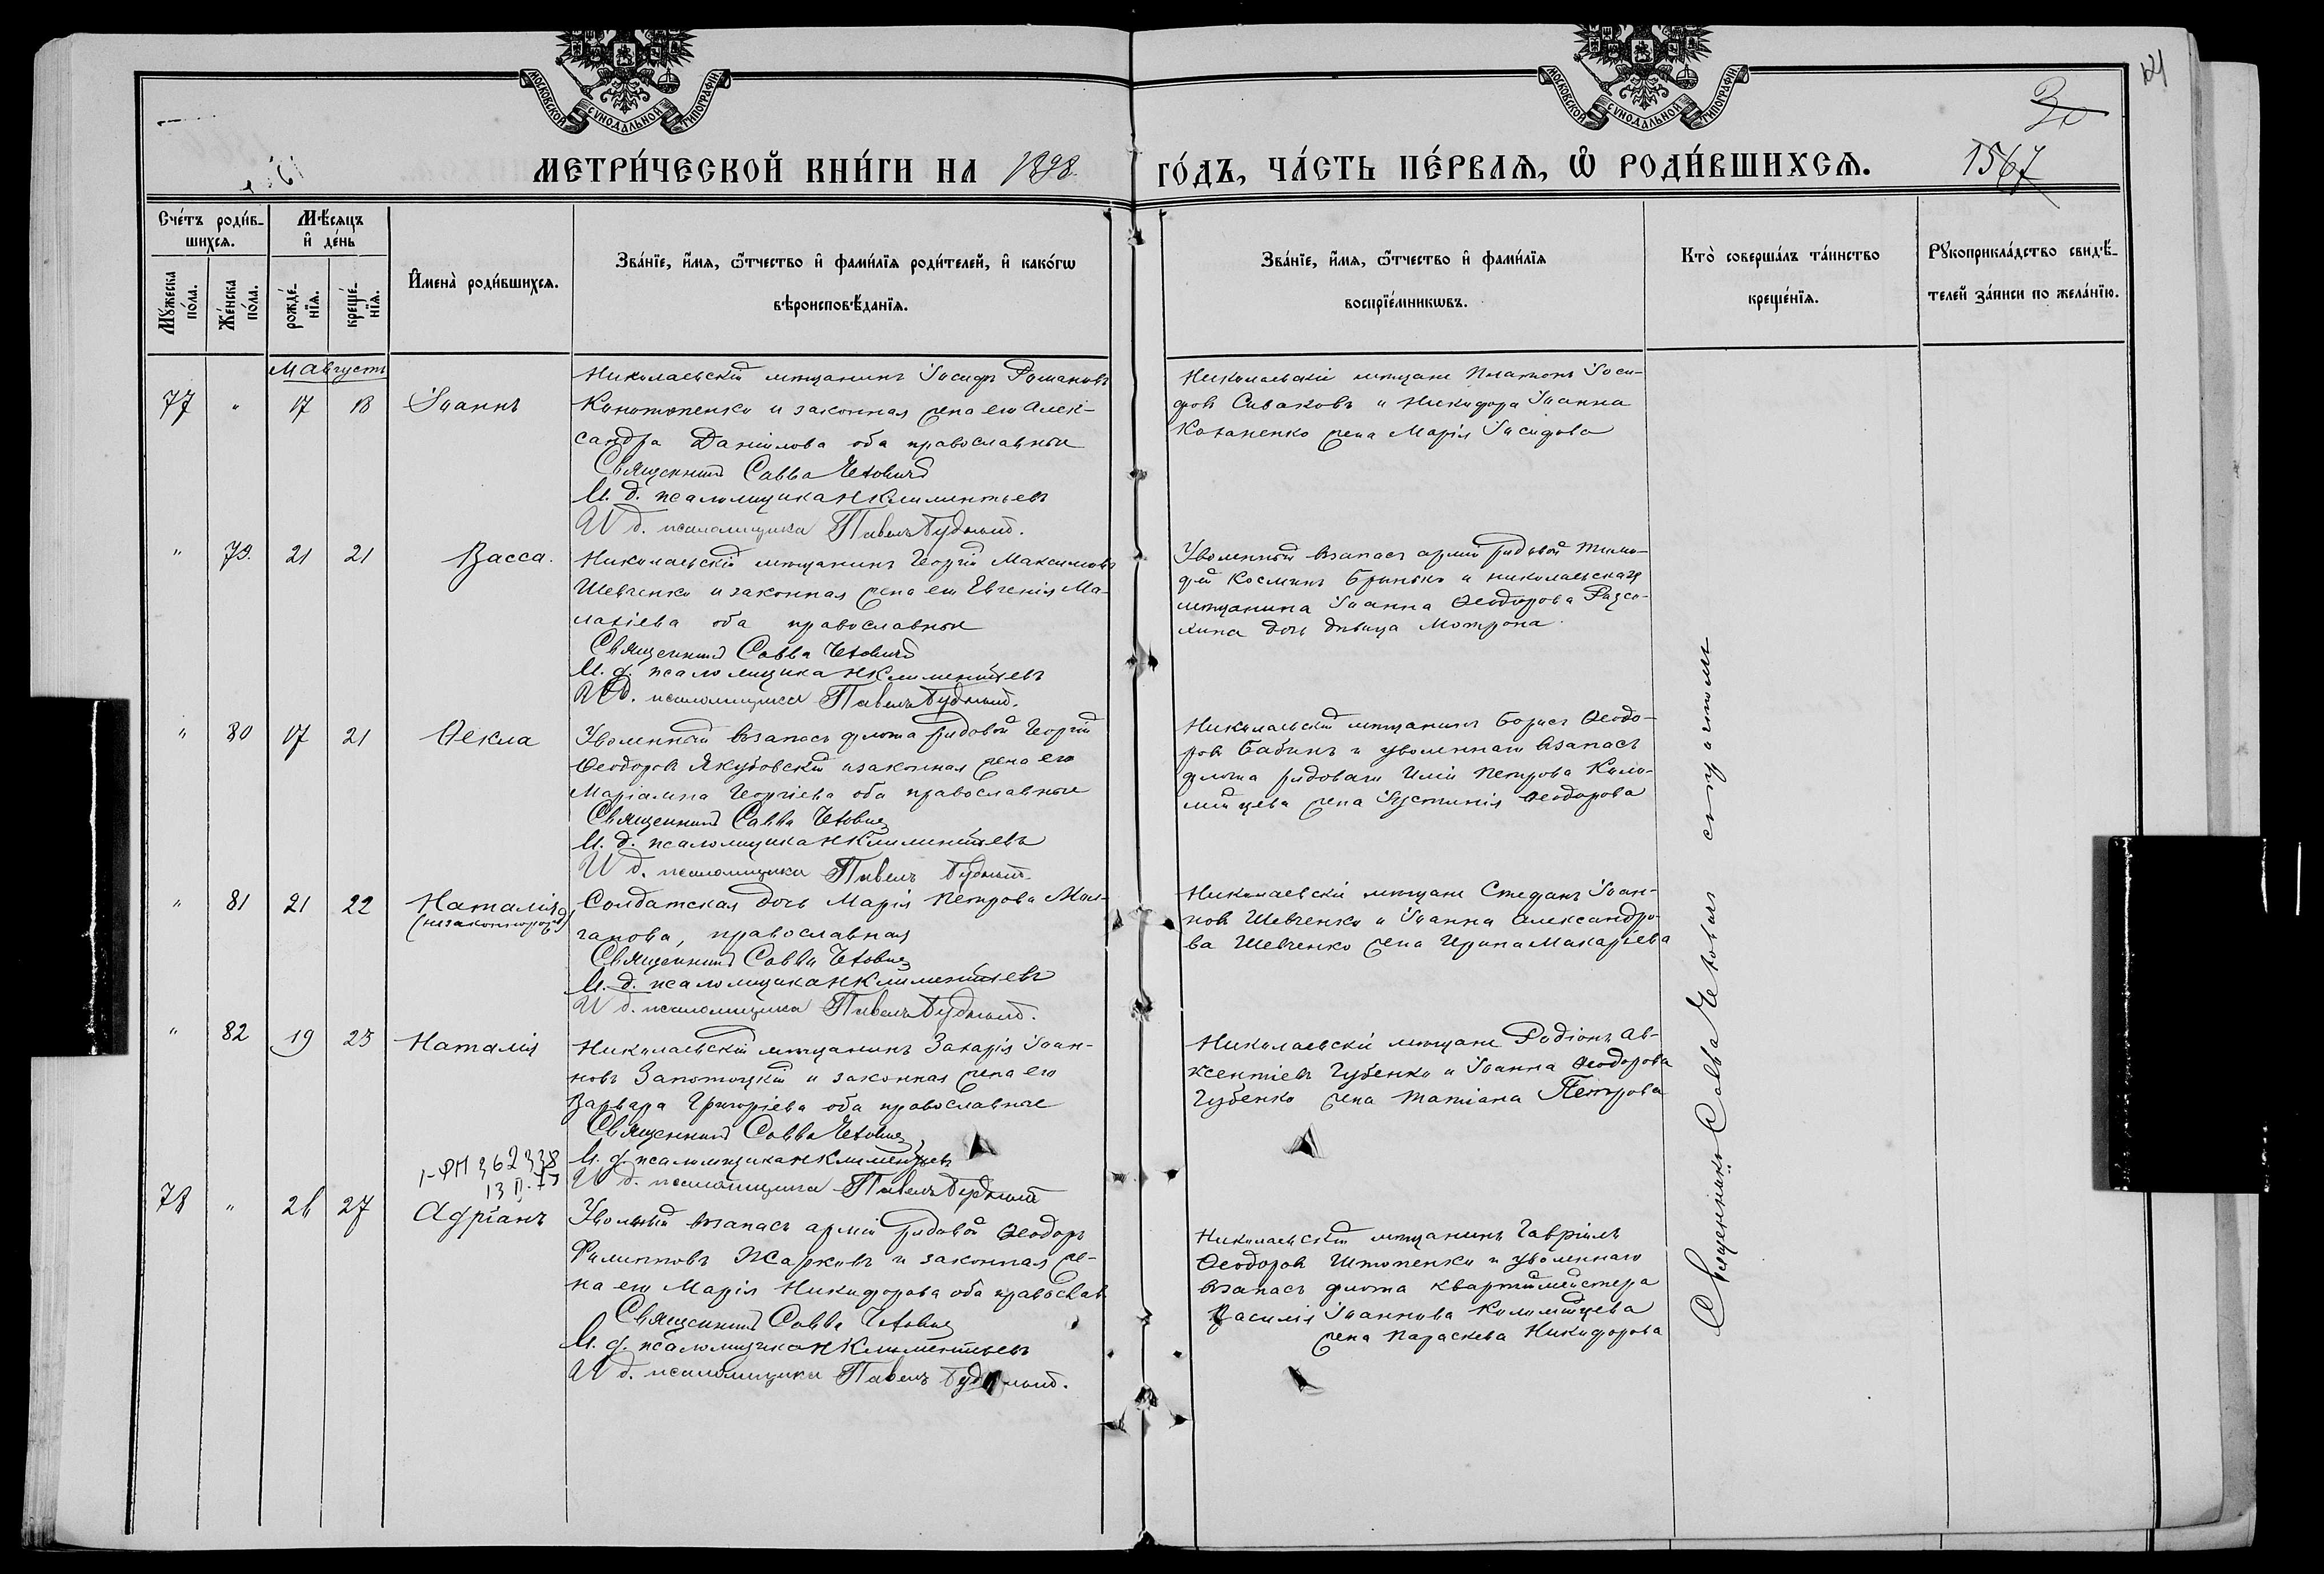 МОСКОВСКОЙ СѴНОДАЛЬНОЙ ТИПОГРАФІИ
МОСКОВСКОЙ СѴНОДАЛЬНОЙ ТИПОГРАФІИ
1567
МЕТРИ́ЧЕСКОЙ КНИ́ГИ НА 1898.
ГО́ДЪ, ЧА́СТЬ ПЕ́РВАѦ, Ѽ РОДИ́ВШИХСѦ.
Сче́тъ роди́в-
шихсѧ.
Мѣ́сѧцъ
и҆ де́нь
Мꙋ́жеска
по́ла.
Же́нска
по́ла.
рожде́-
нїѧ.
креще́-
нїѧ.
И҆мена̀ роди́вшихсѧ.
Зва́нїе, и҆́мѧ, ѻ҆́тчество и҆ фами́лїѧ роди́телей, и҆ како́гѡ
вѣроисповѣ́данїѧ.
Зва́нїе, и҆́мѧ, ѻ҆́тчество и҆ фами́лїѧ
воспрїе́мникѡвъ.
Кто̀ соверша́лъ та́инство
креще́нїѧ.
Рꙋкоприкла́дство свидѣ́-
телей за́писи по жела́нїю.
М Августъ
77 " 17 18 Іоаннъ
Николаевскій мѣщанинъ Іосифъ Романовъ
Конотопенко и законная жена его Алек-
сандра Даніилова оба православные
Священникъ Савва Четовичъ
И. д. псаломщика Н Климентьевъ
И д. псаломщика Павелъ Будный.
Николаевскіе мѣщане Платонъ Іоси-
фовъ Сиваковъ и Никифора Іоанна
Козаненко жена Марія Іосифова
" 79. 21 21 Васса.
Николаевскій мѣщанинъ Георгій Максимовъ
Шевченко и законная жена его Евгенія Ма-
лахіева оба православные
Священникъ Савва Четовичъ
И. д. псаломщика Н Климентьевъ
И д. псаломщика Павелъ Будный.
Уволенный въ запасъ арміи рядовой Тимо-
фей Косминъ Бринько и николаевская
мѣщанина Іоанна Ѳеодорова Разсо-
хина дочь дѣвица Мотрона
" 80 17 21 Ѳекла
Уволенный въ запасъ флота рядовой Георгій
Ѳеодоровъ Якубовскій и законная жена его
Маріамна Георгіева оба православные
Священникъ Савва Четовичъ
И. д. псаломщика Н Климентьевъ
И д. псаломщика Павелъ Будный.
Николаевскій мѣщанинъ Борисъ Ѳеодо-
ровъ Бабинъ и уволеннаго въ запасъ
флота рядоваго Иліи Петрова Коло-
мійцева жена Іустинія Ѳеодорова
" 81 21 22 Наталія
(незаконнорожд)
Солдатская дочь Марія Петрова Мол-
чанова, православная
Священникъ Савва Четовичъ
И. д. псаломщика Н Климентьевъ
И д. псаломщика Павелъ Будный.
Николаевскіе мѣщане Стефанъ Іоан-
новъ Шевченко и Іоанна Александро-
ва Шевченко жена Ирина Макаріева
" 82 19 23 Наталія
Николаевскій мѣщанинъ Захарія Іоан-
новъ Запотоцкій и законная жена его
Варвара Григоріева оба православные
Священникъ Савва Четовичъ
И. д. псаломщика Н Климентьевъ
И д. псаломщика Павелъ Будный
Николаевскіе мѣщане Родіонъ Ав-
ксентіевъ Губенко и Іоанна Ѳеодорова
Губенко жена Татіана Петрова
I-ФП 362338
13 II.
78 " 26 27 Адріанъ
Уволенный въ запасъ арміи рядовой Ѳеодоръ
Филипповъ Жарковъ и законная же-
на его Марія Никифорова оба православ
Священникъ Савва Четовичъ
И. д. псаломщика Н Климентьевъ
И д. псаломщика Павелъ Будный.
Николаевскій мѣщанинъ Гавріилъ
Ѳеодоровъ Штопенко и уволеннаго
въ запасъ флота квартирмейстера
Василія Іоаннова Коломійцева
жена Параскева Никифорова
Священникъ Савва Четовичъ